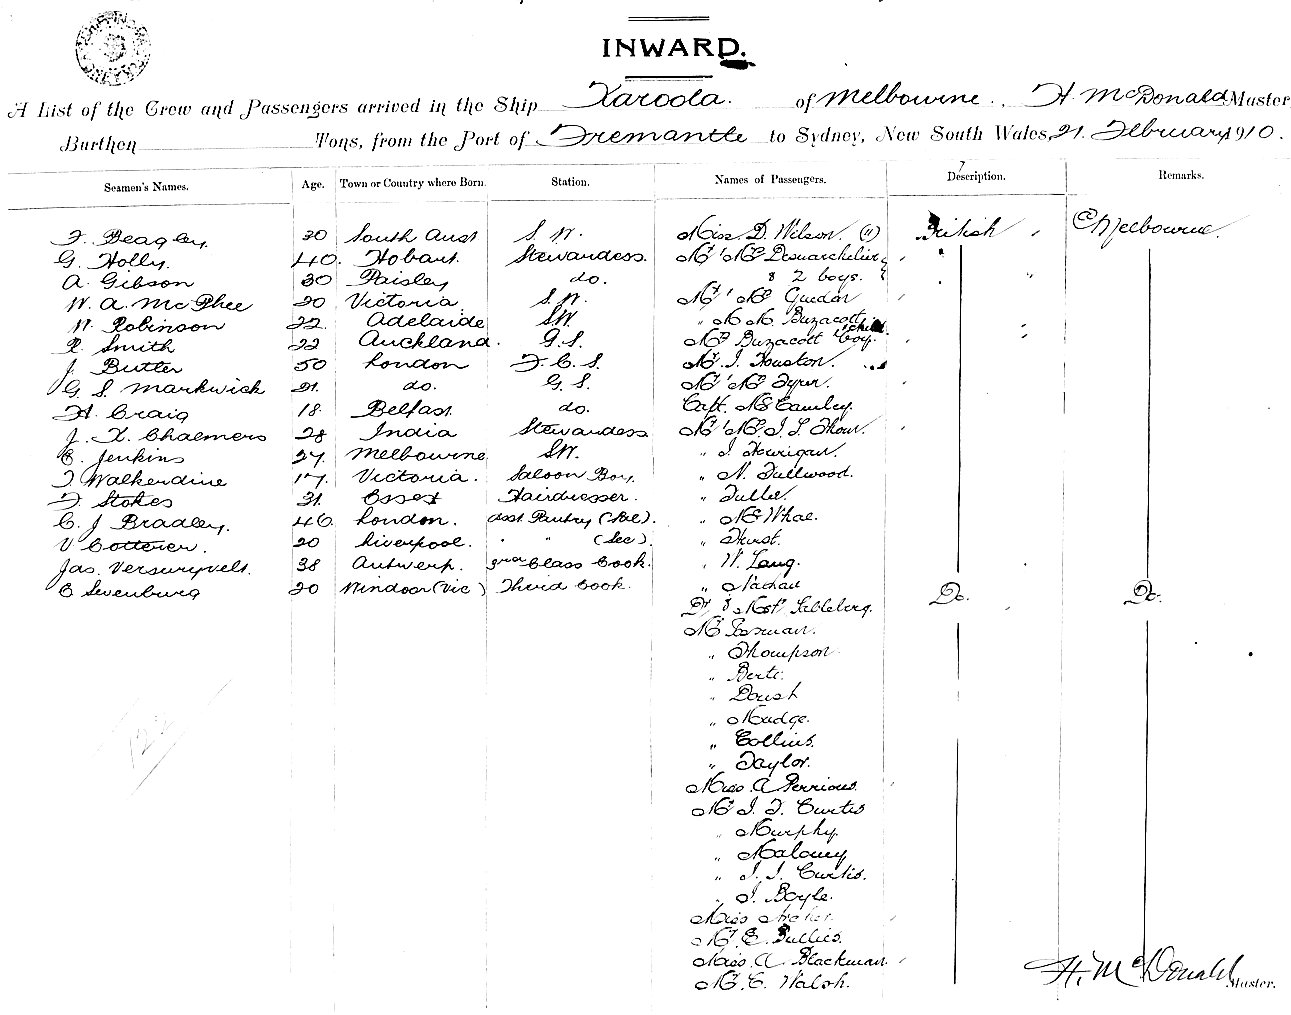 INWARD.
A List of the Crew and Passengers arrived in the Ship Karoola. of Melbourne, H. McDonald Master
Burthen Tons, from the Port of Fremantle to Sydney, New South Wales, 21. February 1910.
Seamen's Names. Age. Town or Country where Born. Station. Names of Passengers. Description. Remarks.
F. Beagley. 30 South Aust S. W. Miss. D. Wilson. (11) British Ex Melbourne.
G. Holly. 40. Hobart. Stewardess. Mr & Mrs
A. Gibson 30 Paisley do. & 2 boys.
W. A. McPhee 20 Victoria S. W. Mr & Mrs
W. Robinson 22 Adelaide S.W. " M. M. Buzacott
R. Smith 22 Auckland. G.S. Mrs Buzacott & boy.
J. Butler 50 London F. C. S. Mr. J. Houston.
G. S. Markwick 21. do. G. S. Mr & Mrs
H. Craig 18. Belfast. do. Capt. McCauley.
J. K. Chalmers 28 India Stewardess Mr & Mrs J. L.
E. Jenkins 27 Melbourne S.W. " J. Hourigan.
T Walkerdine 17 Victoria. Saloon Boy. " N. Fullwood.
F. Stokes 31. Essex Hairdresser. "
C. J Bradley. 40 London. Asst Pantry (Sal). " McWhae.
V Cotterer. 20 Liverpool. " " (Sec). " Hurst.
Jas. Versuryvelt. 38 Antwerp. 2nd Class Cook. " W. Lang.
C Sevenburg 20 Windsor (Vic) Third Cook. " Do. Do.
Dr & Mast.
Mr
" Thompson
"
"
" Mudge.
" Collins.
" Taylor.
Miss. A Perrious.
Mr J. F. Curtis
" Murphy.
" Maloney
" J. J. Curtis.
" J. Boyle.
Miss
Mr. E.
Miss. A. Blackman
Mr. C. Walsh.
H. McDonald Master.
122